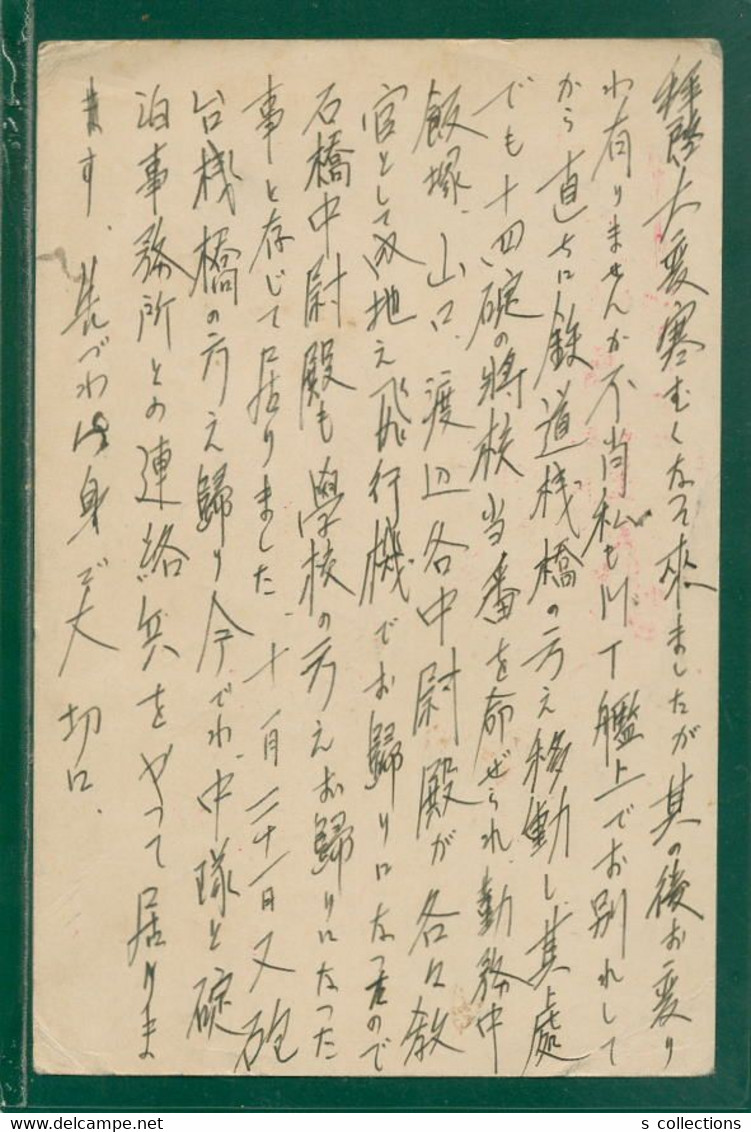 拝啓大変寒むくなって來ましたが其の後お変り
わ有りませんか不肖私も川丁艦上でお別れして
から直ちに鉄道桟橋の方え移動し其処
でも十四碇の將校当番を命ぜられ勤務中
飯塚、山口、渡辺各中尉殿が各々教
官として内地え飛行機でお歸りになったので
石橋中尉殿も學校の方えお歸りになった
事と存じて居りました、十一月二十一日又砲
台桟橋の方え歸り今でわ中隊と碇
泊事務所との連絡兵をやって居りま
ます、先づわ御身で大切に、
s collections